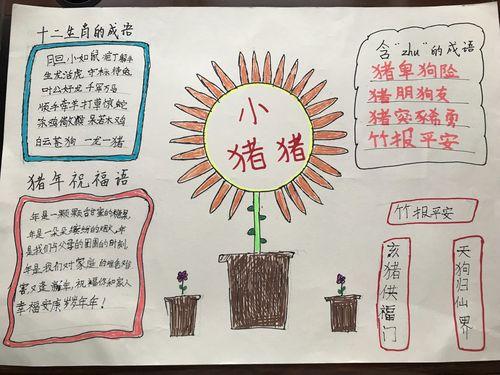 十二生肖的成语
胆小如鼠 庖丁解牛
生龙活虎 守株待兔
叶公好龙 千军万马
顺手牵羊 打草惊蛇
杀鸡儆猴 呆若木鸡
白云苍狗 一龙一猪
猪年祝福语
年是一颗颗甜蜜的糖果
年是一朵朵缤纷的烟火,年
是我们与父辈的团圆的时刻,
年是我们对家庭的
幸福安康岁岁年年!
小
猪猪
含“zhu”的成语
猪卑狗险
猪朋狗友
猪突豨勇
竹报平安
竹报平安
亥猪供福门
天狗归仙界